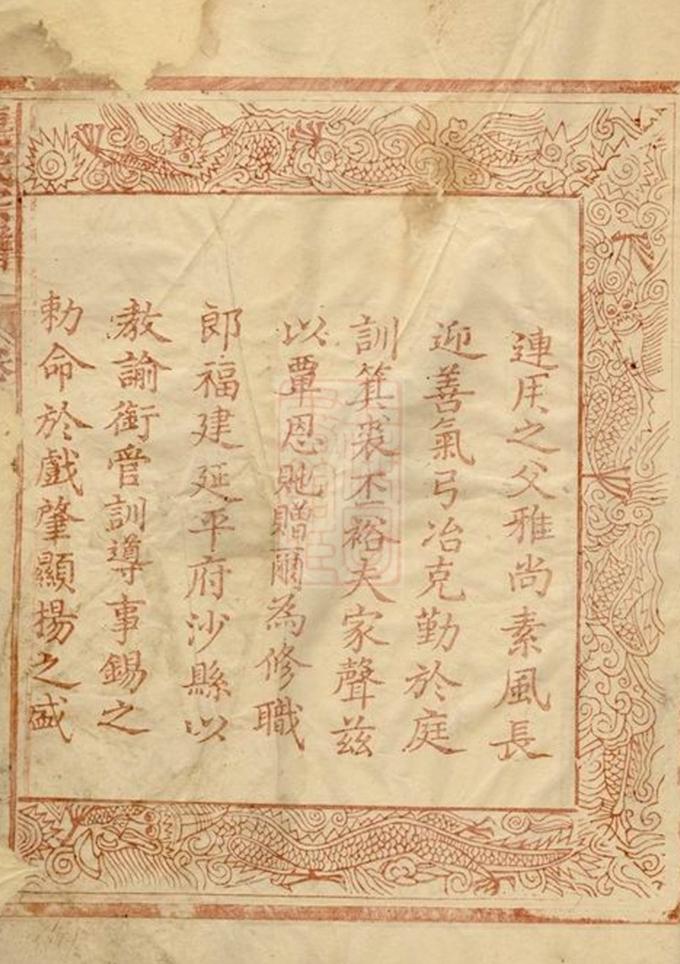 連用之父雅尚素風長
迎善氣弓冶克勤於庭
訓箕裘丕裕夫家聲茲
以覃恩貤贈爾為修職
郎福建延平府沙縣以
教諭銜管訓導事錫之
勅命於戲肇顯揚之盛